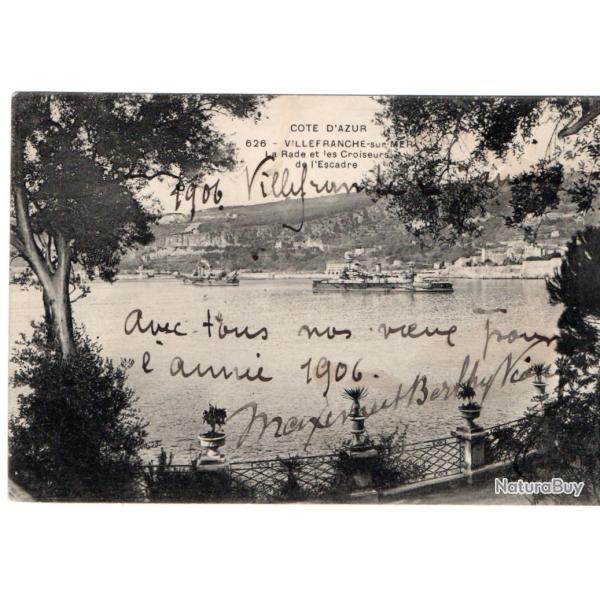 COTE D'AZUR
626 - VILLEFRANCHE-sur-MER
La Rade et les Croiseurs
de l'Escadre
1906 Villefranche
Avec tous nos vœux pour
l'année 1906.
Maxime et Berthe
NaturaBuy